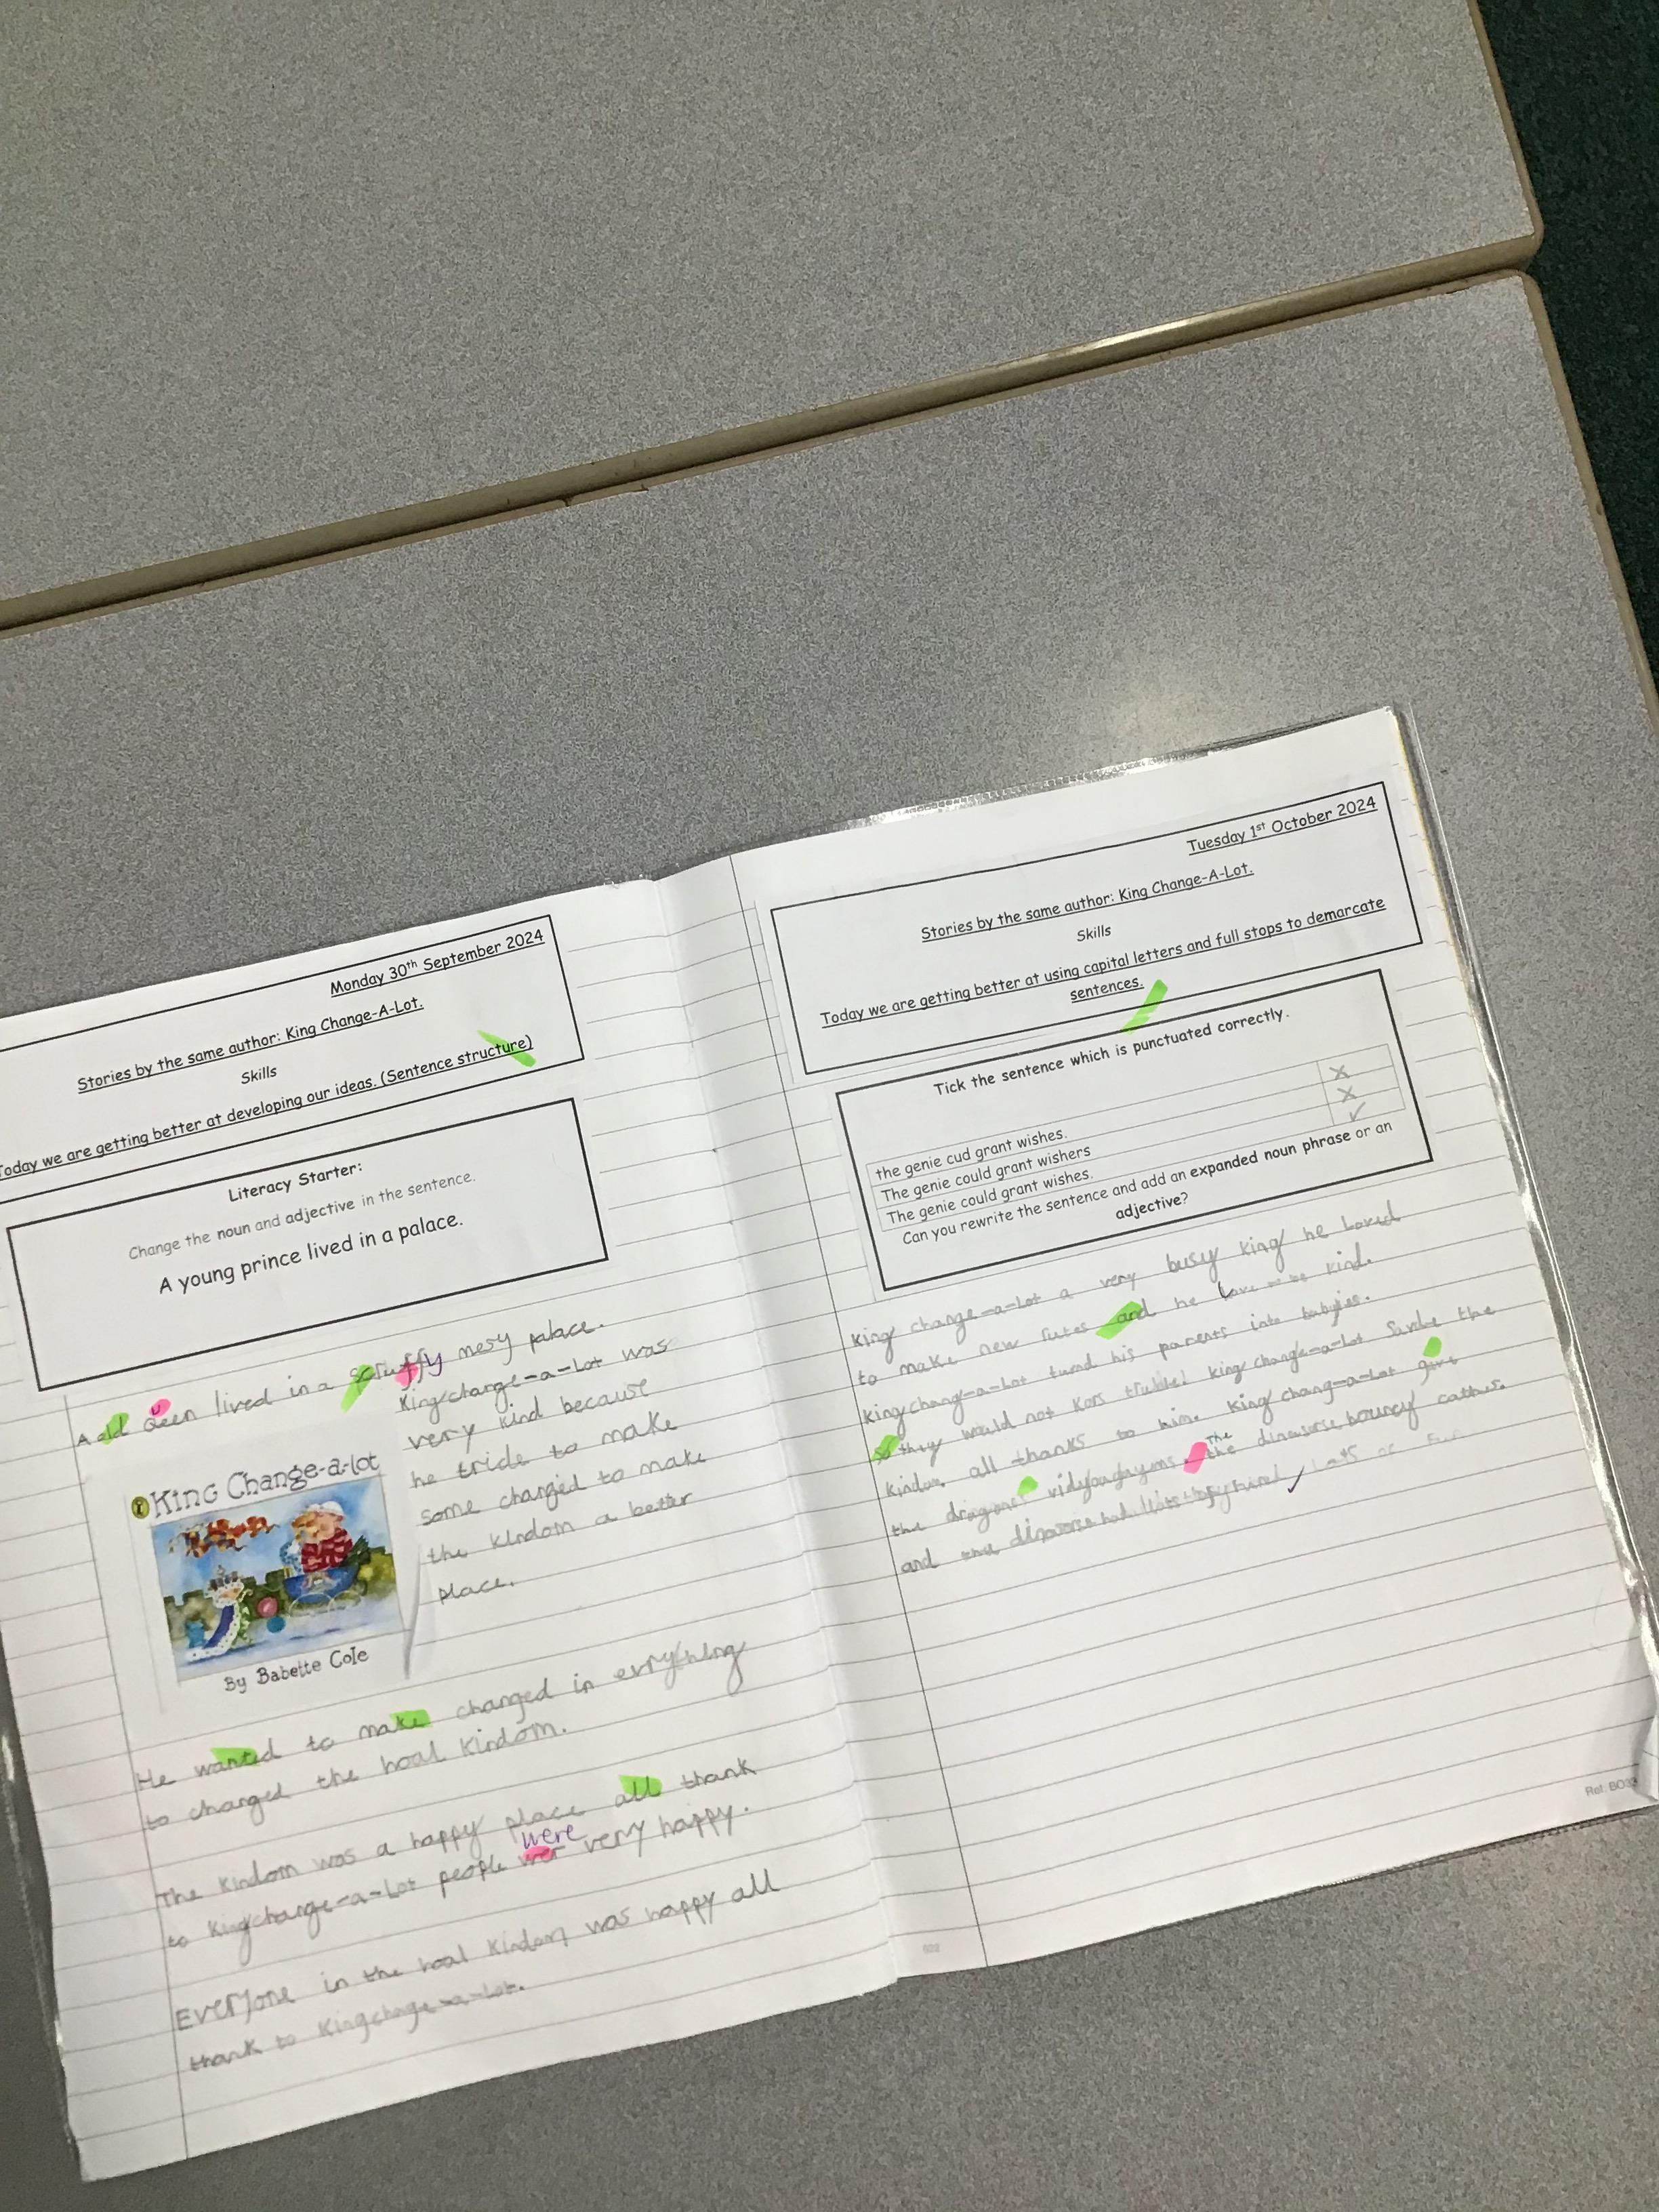 Monday 30th September 2024
Stories by the same author: King Change-A-Lot.
Skills
Today we are getting better at developing our ideas. (Sentence structure)
Literacy Starter:
Change the noun and adjective in the sentence.
A young prince lived in a palace.
A old Queen lived in a scruffy mesy palace.
King Change-a-lot
By Babette Cole
Kingchange-a-Lot was
very kind because
he tride to make
some changed to make
the kindom a better
place.
He wanted to make changed in evrything
to changed the hoal kindom.
were
The kindom was a happy place all thank
to Kingchange-a-Lot people wer very happy.
Everyone in the hoal kindom was happy all
thank to Kingchange-a-lot.
602
Tuesday 1st October 2024
Stories by the same author: King Change-A-Lot.
Skills
Today we are getting better at using capital letters and full stops to demarcate
sentences.
Tick the sentence which is punctuated correctly.
the genie cud grant wishes. x
The genie could grant wishers x
The genie could grant wishes. ✓
Can you rewrite the sentence and add an expanded noun phrase or an
adjective?
King change-a-lot a very busy king he loved
to make new rules and he love to be kind.
king change-a-lot turnd his parents into babyies.
so they would not kors trubbel king change-a-lot the
kindom. all thanks to him. king chang-a-lot give
The
the dragons the bouncy
and the lots of
Ref: BO33